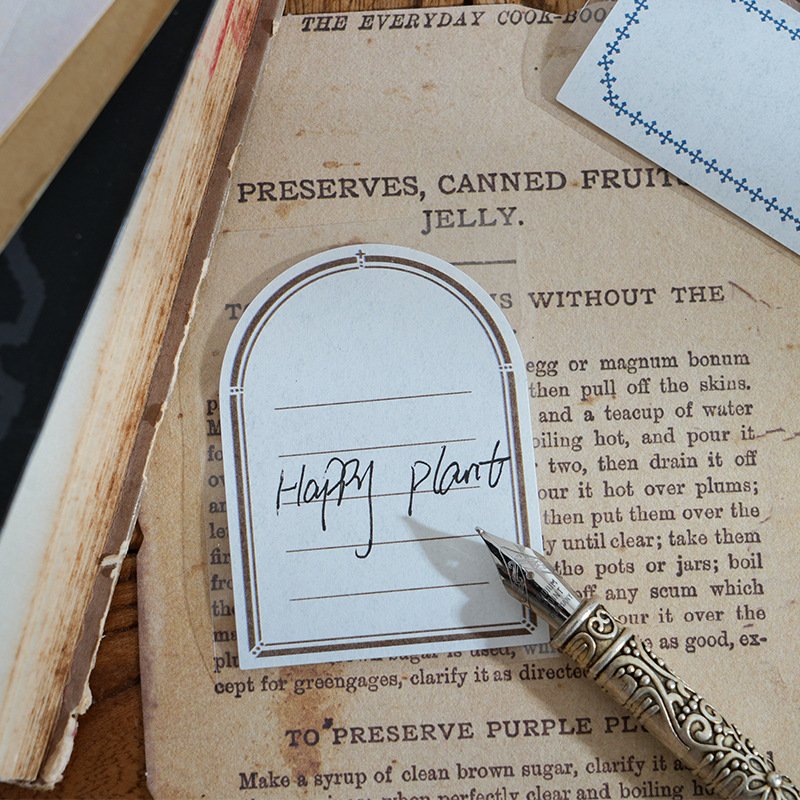 THE EVERYDAY COOK-BOO
PRESERVES, CANNED FRUIT
JELLY.
S WITHOUT THE
egg or magnum bonum
then pull off the skins.
and a teacup of water
oiling hot, and pour it
two, then drain it off
our it hot over plums;
then put them over the
y until clear; take them
the pots or jars; boil
off any scum which
our it over the
as good, ex-
sugar is used,
cept for greengages, clarify it as directe
Happy plant
TO PRESERVE PURPLE PL
Make a syrup of clean brown sugar, clarify it a
when perfectly clear and boiling ho